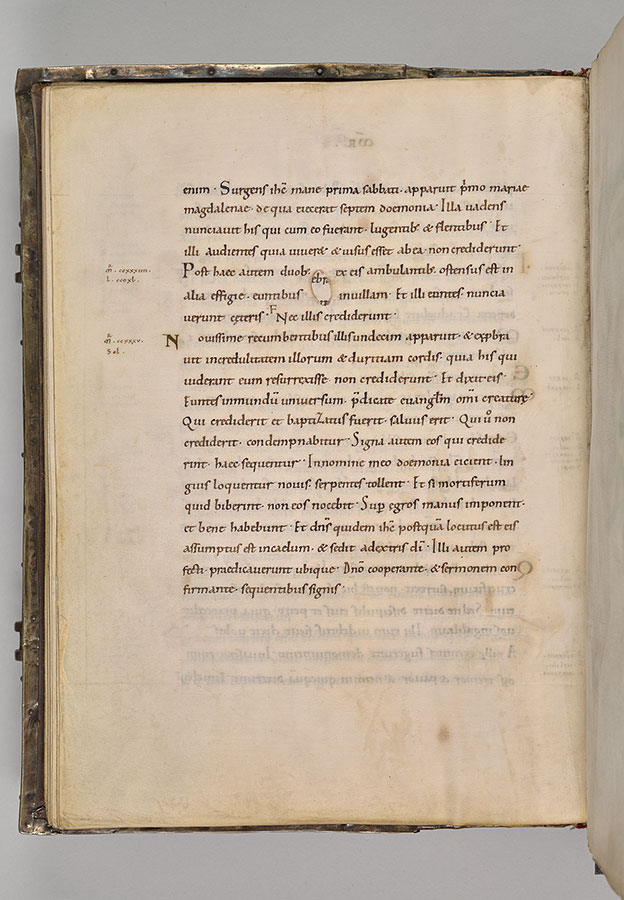 enim · Surgens ihc̄ mane prima sabbati · apparuit p̄mo mariae
magdalenae · de qua eiecerat septem doemonia · Illa vadens
nunciavit his qui cum eo fuerant · lugentib; & flentibus · Et
illi audientes quia viveret & visus esset ab ea · non crediderunt ·
Post haec autem duob; ex eis ambulantib; ostensus est in
alia effigie · euntibus in villam · Et illi euntes nuncia
verunt ceteris · Nec illis crediderunt ·
Novissime recumbentibus illis undecim apparuit · & exp̄bra
vit incredulitatem illorum & duritiam cordis · quia his qui
viderant eum resurrexisse non crediderunt · Et dixit eis ·
Euntes in mundū universum p̄dicate evangliū om̄i creature ·
Qui crediderit et baptizatus fuerit · salvus erit · Qui ů non
crediderit · condempnabitur · Signa autem eos qui credide
rint · haec sequentur · In nomine meo doemonia eicient · lin
guis loquentur novis · serpentes tollent · Et si mortiferum
quid biberint · non eos nocebit · Sup egros manus imponent ·
et bene habebunt · Et dn̄s quidem ihc̄ postquā locutus est eis
assumptus est in caelum · & sedit a dextris dī · Illi autem pro
fecti · praedicaverunt ubique · Dn̄o cooperante · & sermonem con
firmante · sequentibus signis ·
m̄ · ccxxxiiii ·
l · cccxl ·
m̄ · ccxxxv ·
Sol ·